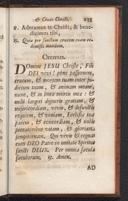 & Cruce Christi. 233
℣. Adoramus te Christe, & bene-
dicimus tibi.
℟. Quia per sanctam crucem tuam re-
demisti mundum.
Oremus.
DOmine JESU Christe, Fili
DEI vivi! pone passionem,
crucem, & mortem tuam inter ju-
dicium tuum, & animam meam,
nunc, & in hora mortis meæ: &
mihi largiri digneris gratiam, &
misericordiam, vivis, & defunctis
requiem, & veniam, Ecclesiæ tuæ
pacem, & concordiam, & nobis
peccatoribus vitam, & gloriam
sempiternam. Qui vivis & regnas
cum DEO Patre in unitate Spiritus
Sancti DEUS. Per omnia sæcula
sæculorum. ℟. Amen.
AD